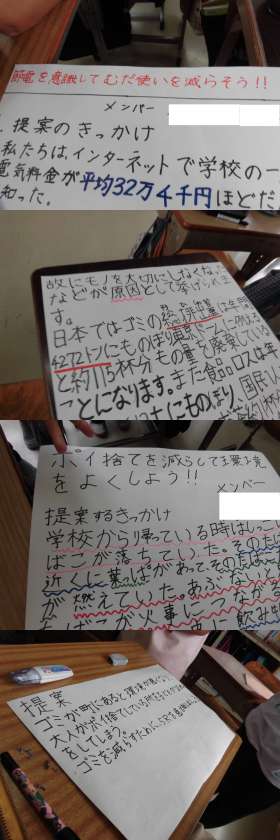 節電を意識してむだ使いを減らそう!!
メンバー
提案のきっかけ
私たちは、インターネットで学校の一
電気料金が平均32万4千円ほどだ
知った。
故にモノを大切にしなくな
などが原因として挙げられ
す。
日本ではゴミの総排出量は年間
4272トンにものぼり東京ドームに例える
と約115杯分もの量を廃棄してい
ことになります。また食品ロスは年
にものぼり、国民
ポイ捨てを減らして環境
をよくしよう!!
メンバー
提案するきっかけ
学校から帰っている時はしっこ
ばこが落ちていた。そのたば
近くに葉っぱがあって、そのたば
が燃えていた。あぶない
たばこが火事につながる
飲み
提案
ゴミが町にあると環境が悪く
大人がポイ捨てしている
をしてしまう。
ゴミを減らすために